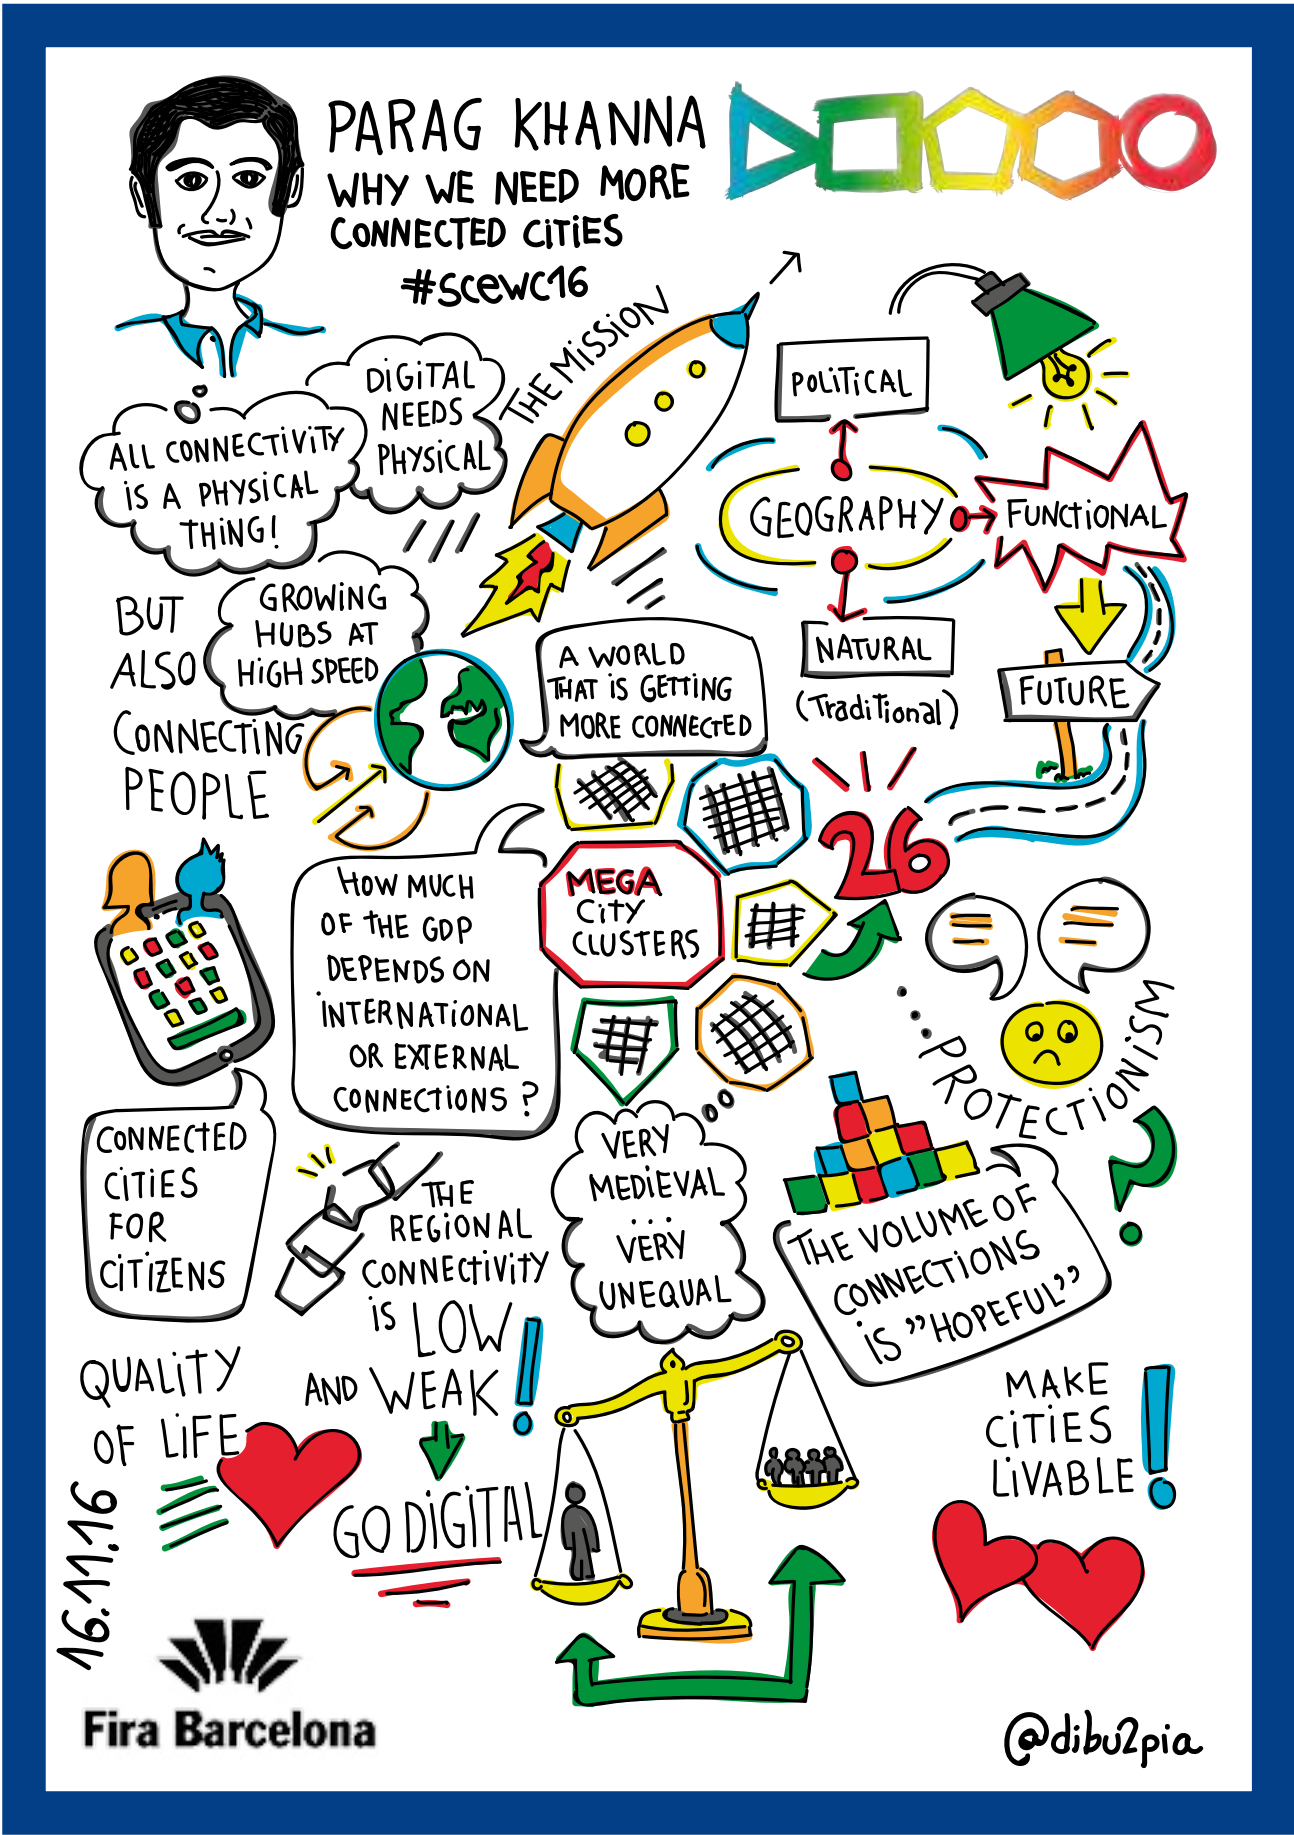 PARAG KHANNA
WHY WE NEED MORE
CONNECTED CITIES
#scewc16
THE MISSION
DIGITAL
NEEDS
PHYSICAL
ALL CONNECTIVITY
IS A PHYSICAL
THING!
POLITICAL
GEOGRAPHY
FUNCTIONAL
NATURAL
(Traditional)
FUTURE
BUT
ALSO
CONNECTING
PEOPLE
GROWING
HUBS AT
HIGH SPEED
A WORLD
THAT IS GETTING
MORE CONNECTED
26
MEGA
CITY
CLUSTERS
HOW MUCH
OF THE GDP
DEPENDS ON
INTERNATIONAL
OR EXTERNAL
CONNECTIONS ?
...PROTECTIONISM
?
CONNECTED
CITIES
FOR
CITIZENS
THE
REGIONAL
CONNECTIVITY
IS LOW
AND WEAK!
GO DIGITAL
VERY
MEDIEVAL
...
VERY
UNEQUAL
THE VOLUME OF
CONNECTIONS
IS "HOPEFUL"
QUALITY
OF LIFE
MAKE
CITIES
LIVABLE!
16.11.16
Fira Barcelona
@dibu2pia